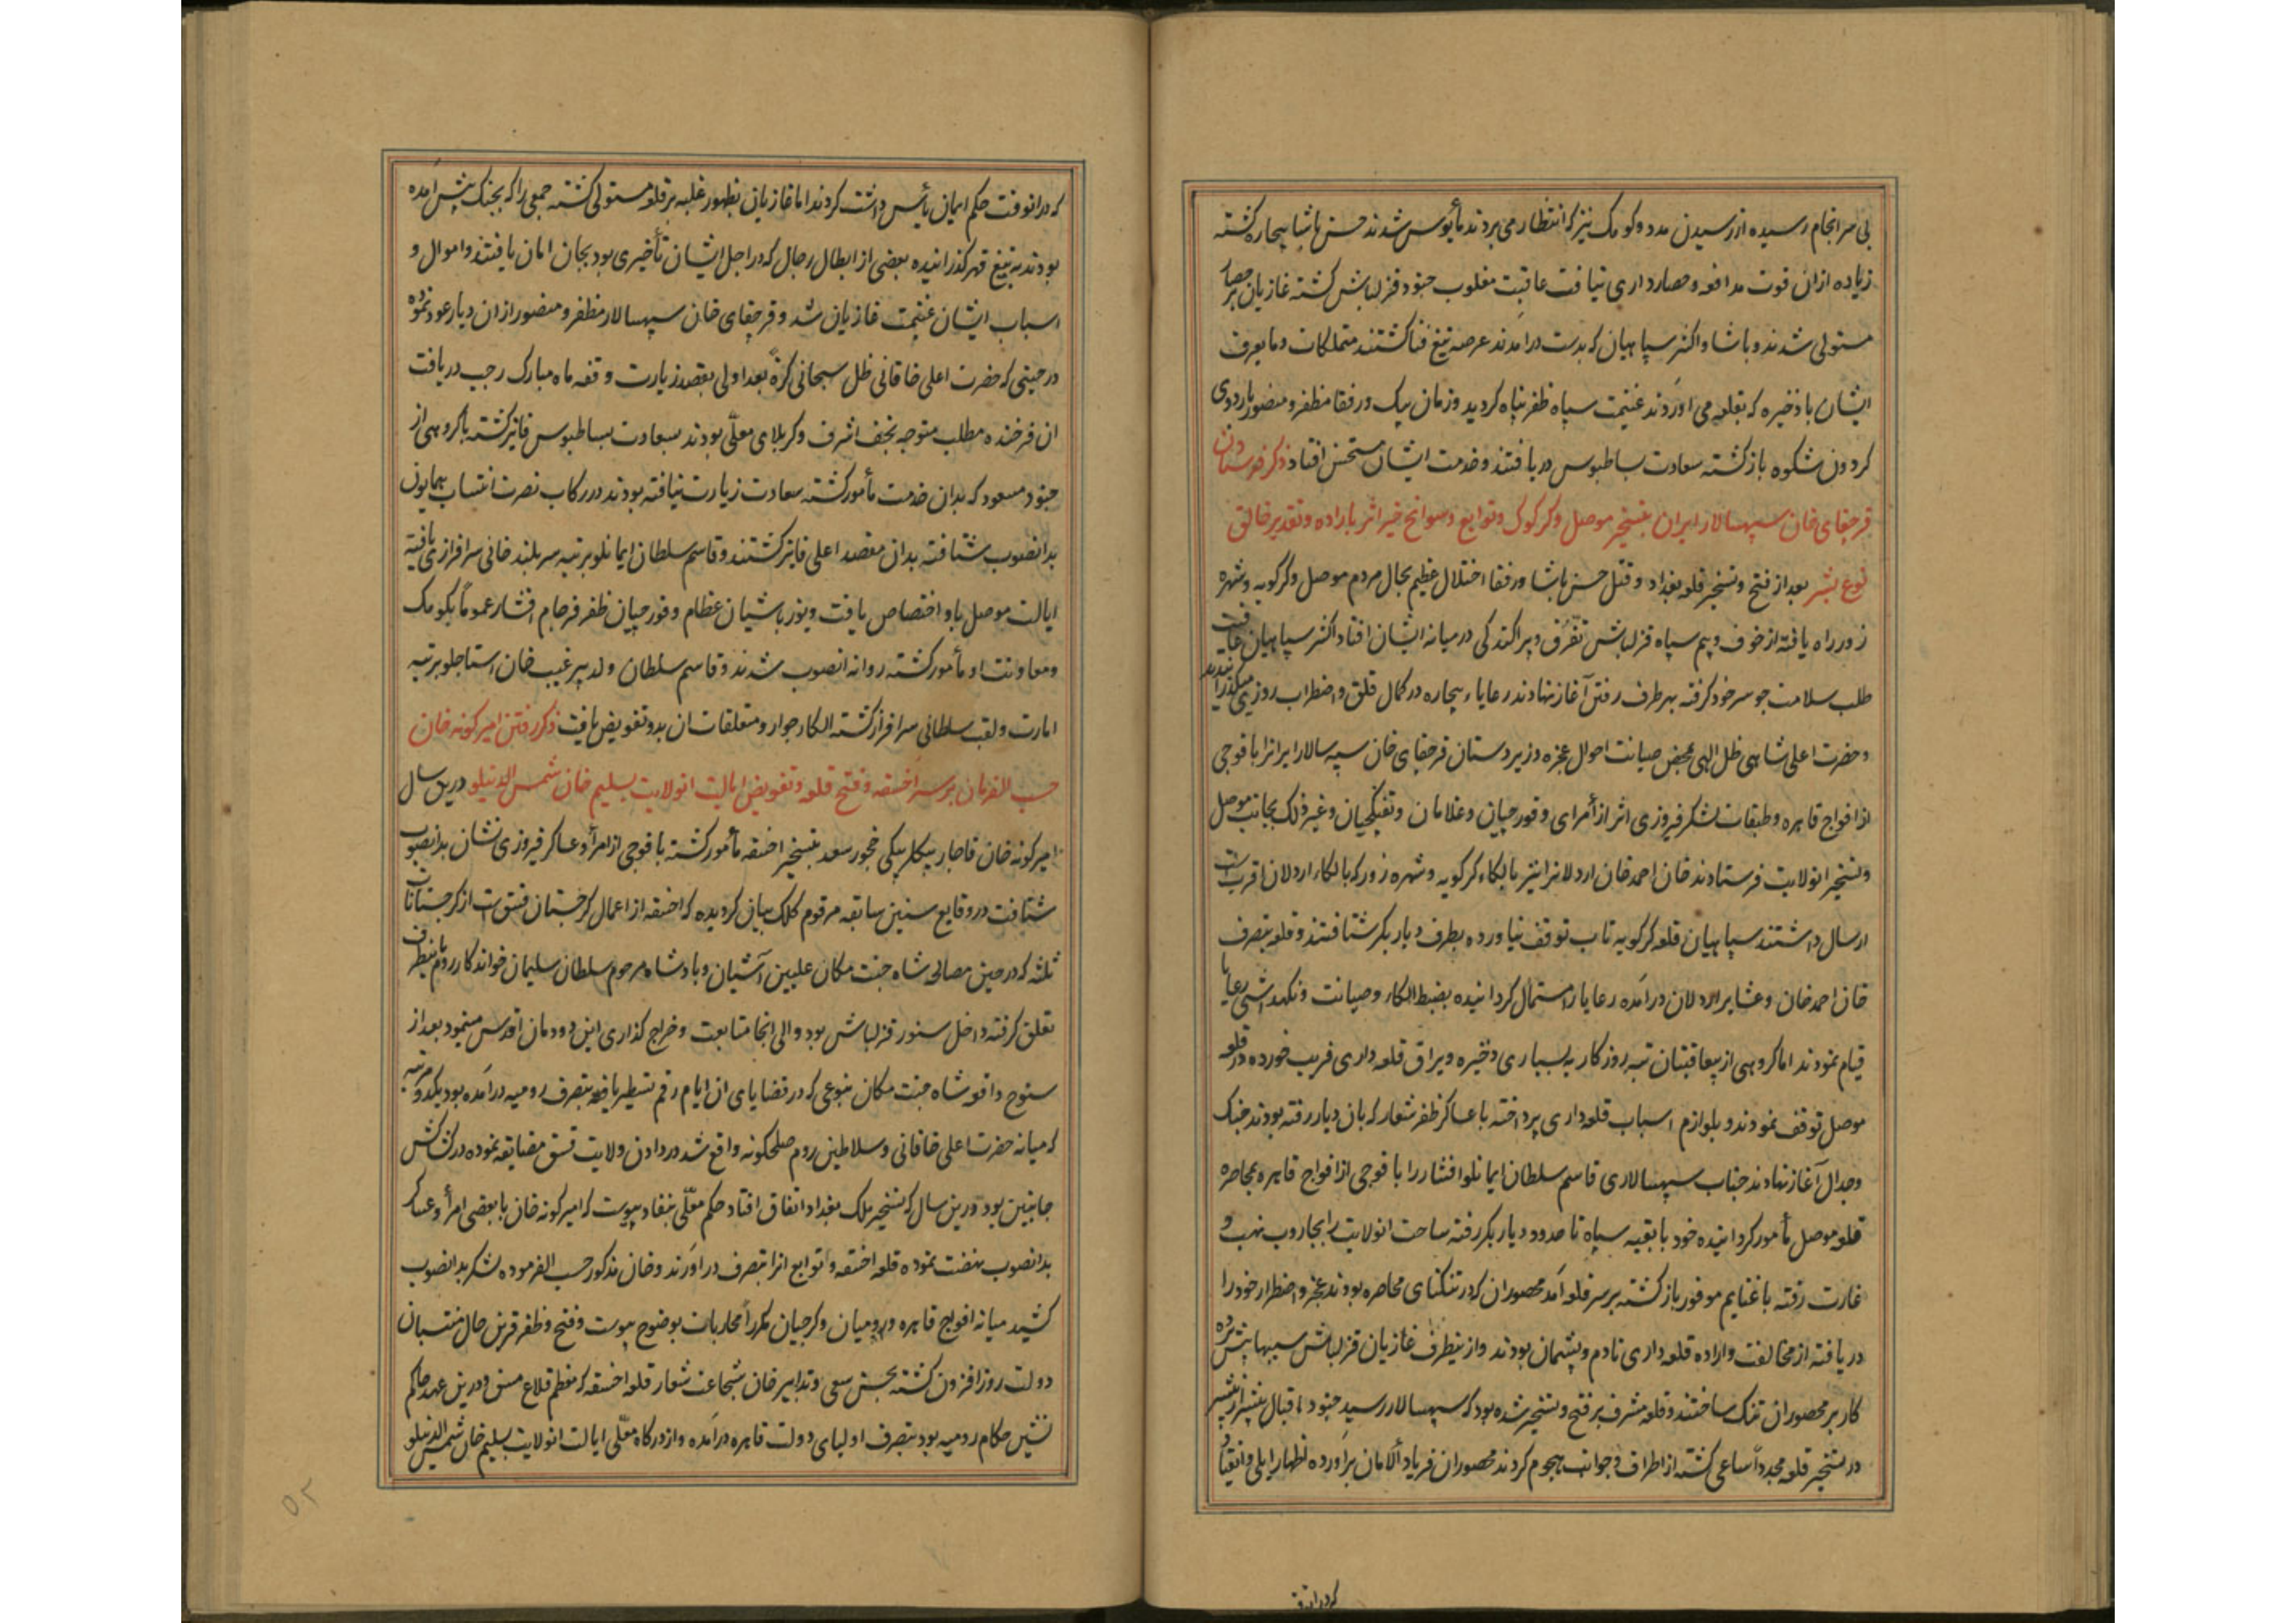 بی سر انجام رسیده از رسیدن مدد و کومک نیز که انتظار می بردند مأیوس شدند حسن پاشا بیچاره کشته
زیاده ازان قوت مدافعه و حصارداری نیافت عاقبت مغلوب جنود قزلباش کشته غازیان بر حصار
مستولی شدند و پاشا و اکثر سپاهیان که بدست درآمدند عرصه تیغ فنا کشتند متملکات و مایعرف
ایشان با ذخیره که بقلعه می اوردند غنیمت سپاه ظفر پناه کردید و زمان بیک و رفقا مظفر و منصور باردوی
کردون شکوه بازکشته سعادت بساطبوس دریافتند و خدمت ایشان مستحسن افتاد ذکر فرستادن
قرچقای خان سپهسالار ایران بتسخیر موصل و کرکوک و توابع و سوانح خیر اثر باراده و تقدیر خالق
نوع بشر بعد از فتح و تسخیر قلعه بغداد و قتل حسن پاشا و رفقا اختلال عظیم بحال مردم موصل و کرکویه و شهره
زور راه یافته از خوف و بیم سپاه قزلباش تفرق و پراکندکی در میانه ایشان افتاد اکثر سپاهیان عافیت
طلب سلامت جو سر خود کرفته بهرطرف رفتن آغاز نهادند رعایاء بیچاره در کمال قلق و اضطراب روزی میکذرانیدند
و حضرت اعلی شاهی ظل الهی بمحض صیانت احوال عجزه و زیردستان قرچقای خان سپه سالار ایرانرا با فوجی
از افواج قاهره و طبقات لشکر فیروزی اثر از أمرای و قورچیان و غلامان و تفنکچیان و غیر ذلک بجانب موصل
و تسخیر انولایت فرستادند خان احمد خان اردلانرا نیز بالکاء کرکویه و شهره زور که بالکاء اردلان اقرب است
ارسال داشتند سپاهیان قلعه کرکویه تاب توقف نیاورده بطرف دیار بکر شتافتند و قلعه بتصرف
خان احمد خان و عشایر اردلان درآمده رعایا را استمال کردانیده بضبط الکاء و صیانت و نکهداشتی رعایا
قیام نمودند اما کروهی از بیعاقبتان تبه روزکار به بسیاری ذخیره و یراق قلعه داری فریب خورده در قلعه
موصل توقف نمودند و بلوازم اسباب قلعه داری پرداخته با عساکر ظفر شعار که بان دیار رفته بودند جنک
و جدال آغاز نهادند جناب سپهسالاری قاسم سلطان ایمانلو افشار را با فوجی از افواج قاهره بمحاصره
قلعه موصل مأمور کردانیده خود با بقیه سپاه تا حدود دیار بکر رفته ساحت انولایت را بجاروب نهب و
غارت رفته با غنایم موفور بازکشته بر سر قلعه آمد محصوران که در تنکنای محاصره بودند عجز و اضطرار خود را
دریافته از مخالفت و اراده قلعه داری نادم و پشیمان بودند و از ینطرف غازیان قزلباش سیبها پیش برده
کار بر محصوران تنک ساختند و قلعه مشرف بر فتح و تسخیر شده بود که سپهسالار رسید جنود اقبال بیشتر از پیشتر
در تسخیر قلعه مجدداً ساعی کشته از اطراف و جوانب هجوم کردند محصوران فریاد الامان براورده اظهار ایلی و انقیاد
که درانوقت حکم ایمان یأس داشت کردند اما غازیان بظهور غلبه بر قلعه مستولی کشته جمعی را که بجنک پیش آمده
بودند به تیغ قهر کذرانیده بعضی از ابطال رجال که در اجل ایشان تأخیری بود بجان امان یافتند و اموال و
اسباب ایشان غنیمت غازیان شد و قرچقای خان سپهسالار مظفر و منصور ازان دیار عود نموده
در حینی که حضرت اعلی خاقانی ظل سبحانی کرةً بعد اولی بقصد زیارت وقفه ماه مبارک رجب دریافت
ان فرخنده مطلب متوجه نجف اشرف و کربلای معلّی بودند بسعادت بساطبوس فایز کشته با کروهی از
جنود مسعود که بدان خدمت مأمور کشته سعادت زیارت نیافته بودند در رکاب نصرت انتساب همایون
بدانصوب شتافته بدان مقصد اعلی فایز کشتند و قاسم سلطان ایمانلو برتبه سربلند خانی سرافرازی یافته
ایالت موصل باو اختصاص یافت و یوزباشیان عظام و قورچیان ظفر فرجام افشار عموماً بکومک
و معاونت او مأمور کشته روانه انصوب شدند و قاسم سلطان ولد پیر غیب خان استاجلو برتبه
امارت و لقب سلطانی سرافراز کشته الکاء جوار و متعلقات ان بدو تفویض یافت ذکر رفتن امیرکونه خان
حسب الفرمان بر سر آخسقه و فتح قلعه و تفویض ایالت انولایت بسلیم خان شمس الدینلو درین سال
امیرکونه خان قاجار بیکلربیکی چخور سعد بتسخیر اخسقه مأمور کشته با فوجی از امرأ و عساکر فیروزی نشان بدانصوب
شتافت در وقایع سنین سابقه مرقوم کلک بیان کردیده که اخسقه از اعمال کرجستان مسق است از کرجستانات
ثلثه که در حین مصالحه شاه جنت مکان علیین آشیان و پادشاه مرحوم سلطان سلیمان خواندکار روم باینطرف
تعلق کرفته داخل سنور قزلباش بود و والی انجا متابعت و خراج کذاری این دودمان اقدس مینمود بعد از
سنوح واقعه شاه جنت مکان بنوعی که در قضایای ان ایام رقم تسطیر یافته بتصرف رومیه درآمده بود یکدو مرتبه
که میانه حضرت اعلی خاقانی و سلاطین روم صلحکونه واقع شد در دادن ولایت مسق مضایقه نموده در کشاکش
جانبین بود درین سال که تسخیر ملک بغداد اتفاق افتاد حکم معلّی بنفاذ پیوست که امیرکونه خان با بعضی امرأ و عساکر
بدانصوب نهضت نموده قلعه اخسقه و توابع انرا بتصرف دراورند و خان مذکور حسب الفرموده لشکر بدانصوب
کشید میانه افواج قاهره و رومیان و کرجیان مکرراً محاربات بوضوح پیوست و فتح و ظفر قرین حال منتسبان
دولت روزافزون کشته بحسن سعی و تدابیر خان شجاعت شعار قلعه اخسقه که معظم قلاع مسق و درین عهد حاکم
نشین حکام رومیه بود بتصرف اولیای دولت قاهره درآمده و از درکاه معلّی ایالت انولایت بسلیم خان شمس الدینلو
۵۲